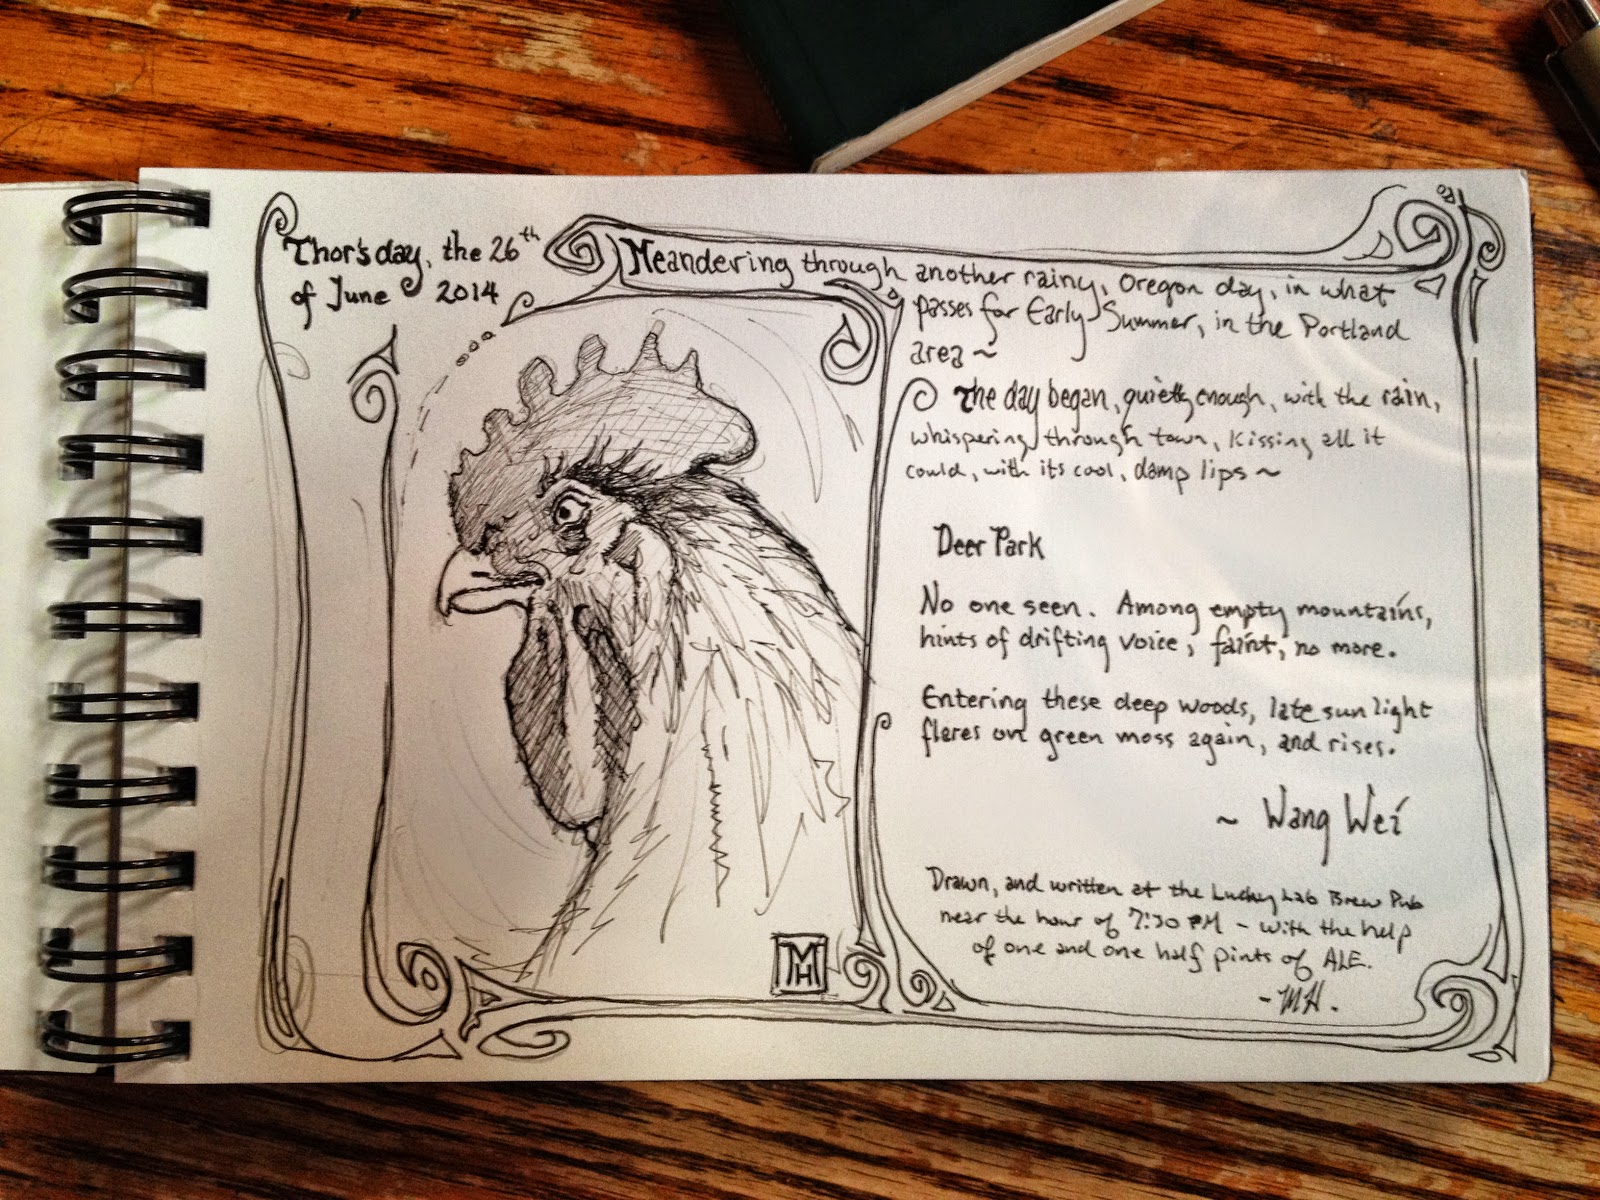 Thor's day, the 26th
of June 2014
Meandering through another rainy, Oregon day, in what
passes for Early Summer, in the Portland
area ~
The day began, quietly enough, with the rain,
whispering through town, kissing all it
could, with its cool, damp lips ~
Deer Park
No one seen. Among empty mountains,
hints of drifting voice, faint, no more.
Entering these deep woods, late sunlight
flares on green moss again, and rises.
~ Wang Wei
Drawn, and written at the Lucky Lab Brew Pub
near the hour of 7:30 PM - with the help
of one and one half pints of ALE.
- MH.
MH